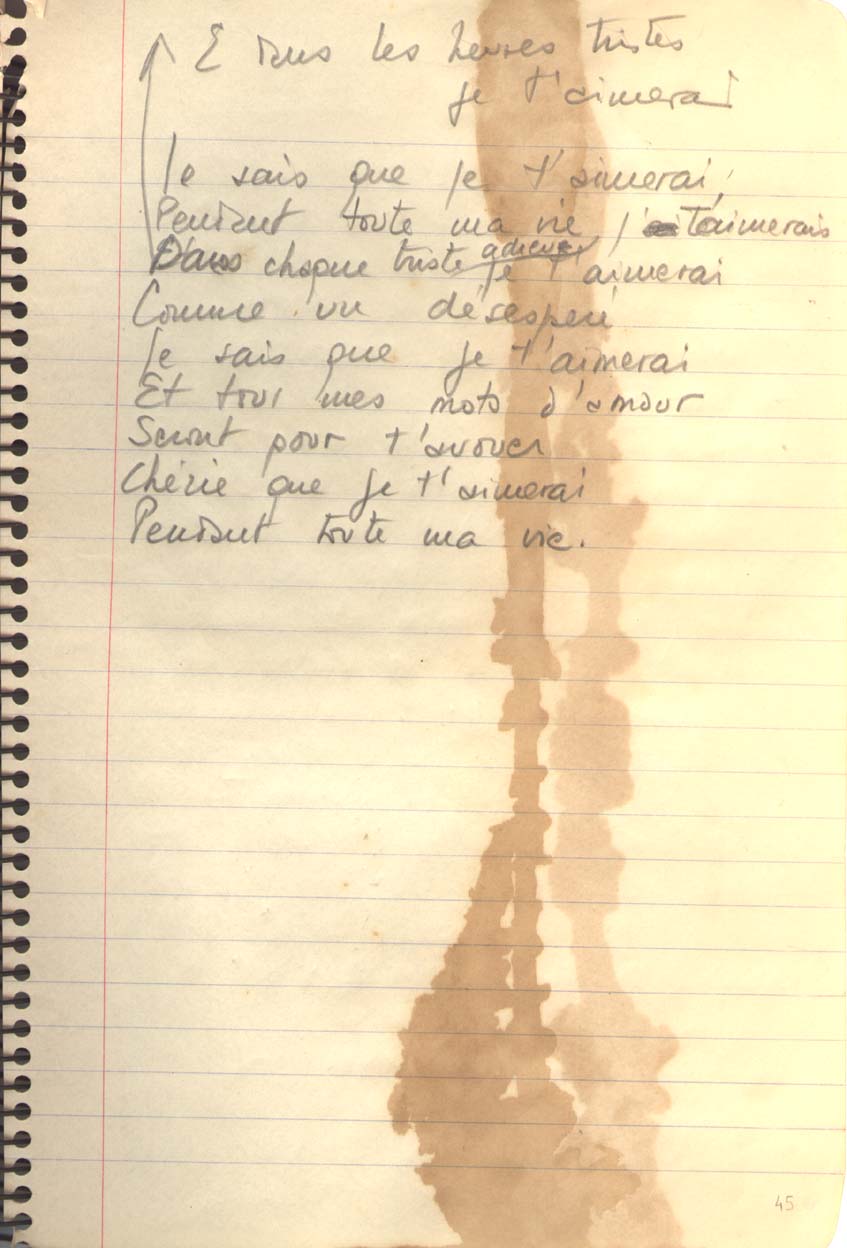 E dans les heures tristes
je t'aimerai
Je sais que je t'aimerai,
Pendant toute ma vie, je t'aimerais
Dans chaque triste adieux je t'aimerai
Comme un désesperé
Je sais que je t'aimerai
Et tous mes mots d'amour
Seront pour t'avouer
Chérie que je t'aimerai
Pendant toute ma vie.
45